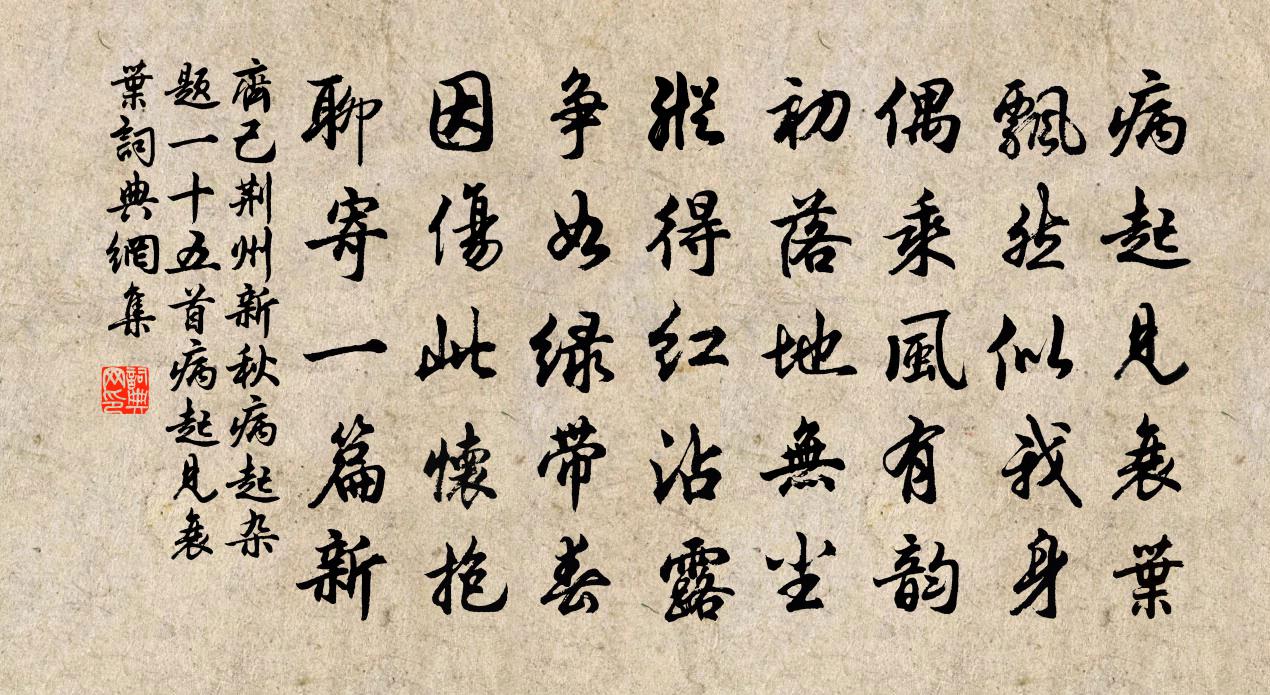 病起見衰葉
飄然似我身
偶乘風有韵
初落地無尘
縱得红沾露
争如緑帶春
因傷此懷抱
聊寄一篇新
齊己荆州新秋病起杂
题一十五首病起見衰
葉詞典網集
詞典
网印